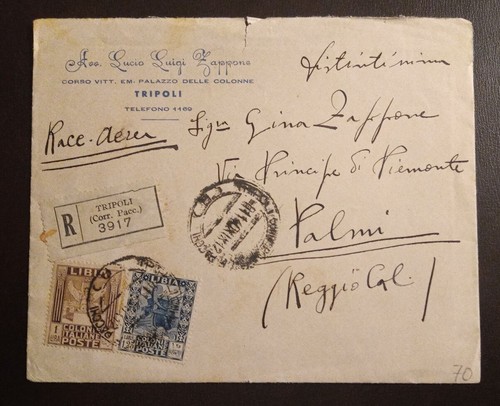 Avv. Lucio Luigi Zappone
CORSO VITT. EM: PALAZZO DELLE COLONNE
TRIPOLI
TELEFONO 1169
Distintissima
Race. Aerea
Sig.ra Gina Zappone
Via Principe di Piemonte
Palmi
(Reggio Cal.)
R
TRIPOLI
(Corr. Pacc.)
3917
LIBIA
1
COLONIE
ITALIANE
POSTE
LIBIA
POSTE
70